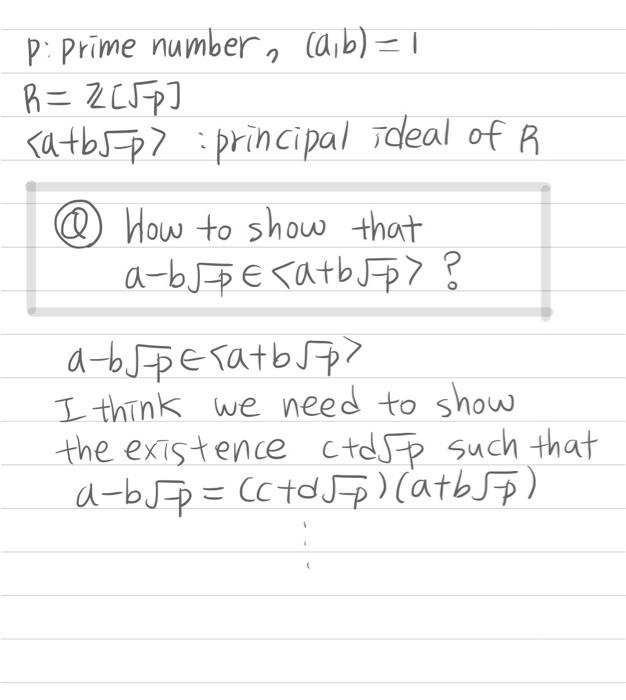 p: prime number, (a,b)=1
R = ℤ[√-p]
<a+b√-p> : principal ideal of R
Ⓠ How to show that
a-b√-p ∈ <a+b√-p> ?
a-b√-p ∈ <a+b√-p>
I think we need to show
the existence c+d√-p such that
a-b√-p = (c+d√-p)(a+b√-p)
⋮